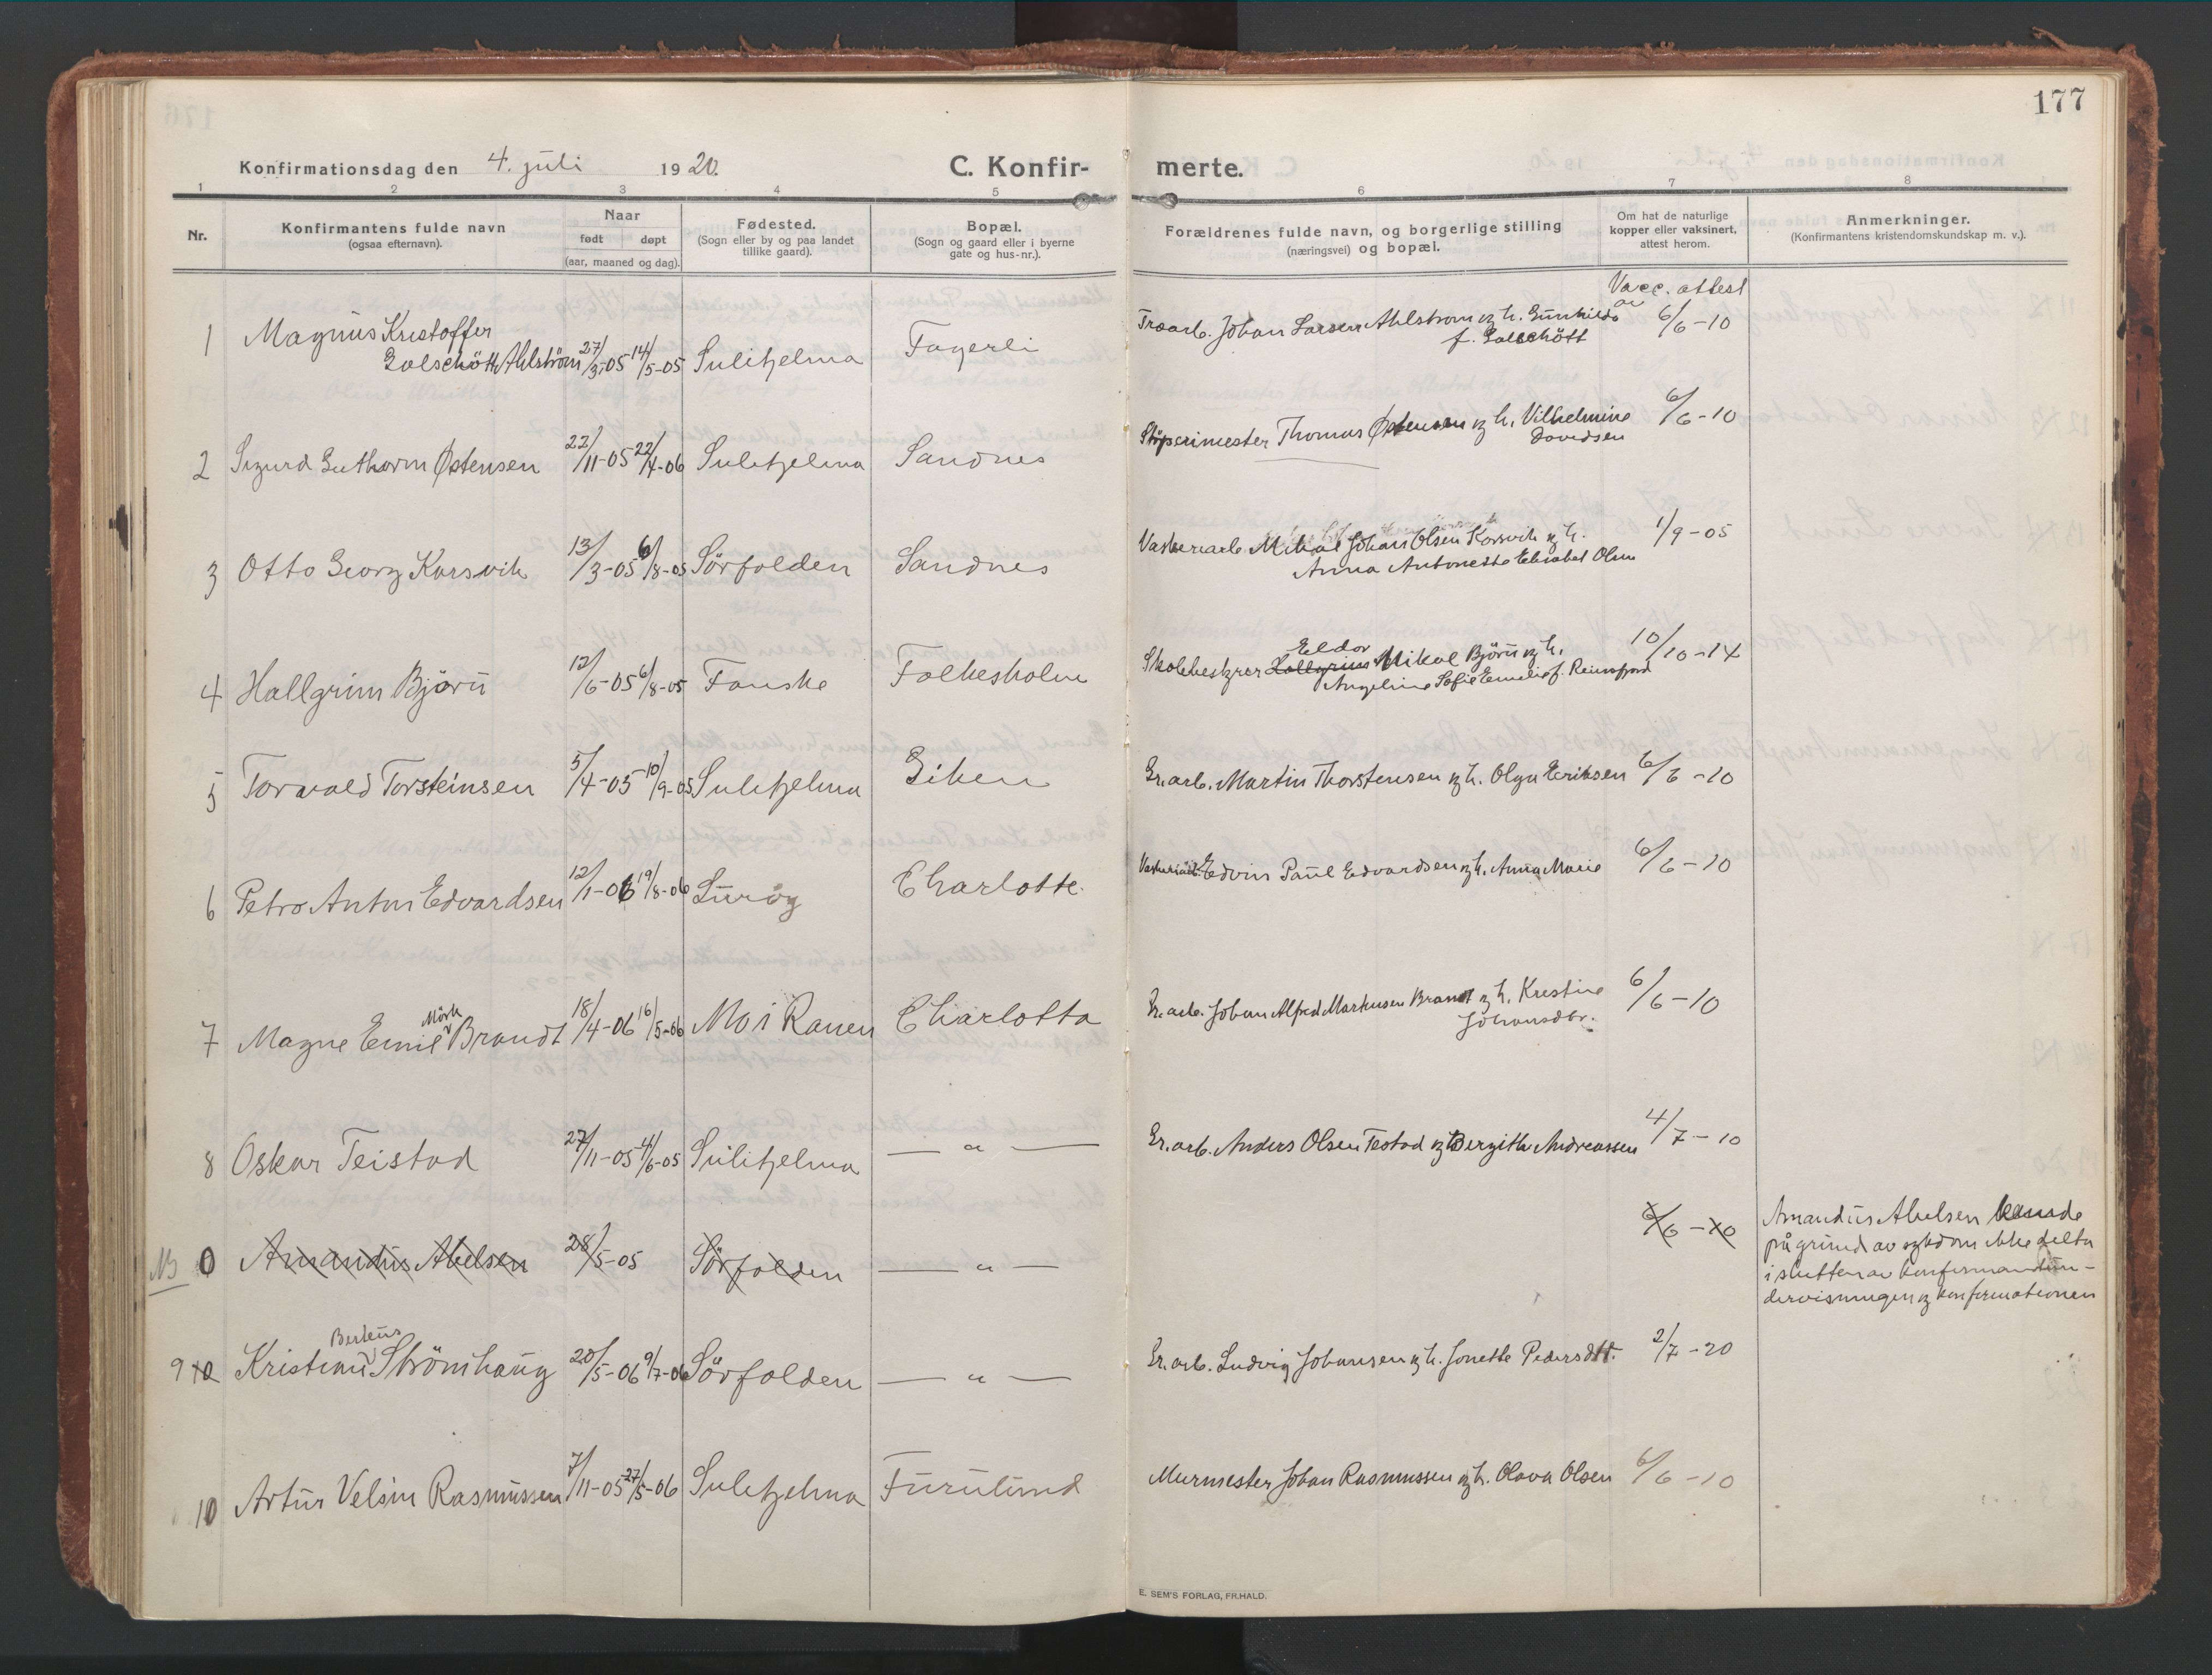 177
Konfirmationsdag den 4. juli 1920. C. Konfirmerte.
1 2 3 4 5 6 7 8
Nr. Konfirmantens fulde navn (ogsaa efternavn). Naar født døpt (aar, maaned og dag). Fødested. (Sogn eller by og paa landet tillike gaard). Bopæl. (Sogn og gaard eller i byerne gate og hus-nr.). Forældrenes fulde navn, og borgerlige stilling (næringsvei) og bopæl. Om hat de naturlige kopper eller vaksinert, attest herom. Anmerkninger. (Konfirmantens kristendomskundskap m. v.).
Vacc. attest
av
1 Magnus Kristoffer Golschött Ahlström 27/3-05 14/5-05 Sulitjelma Fagerli Johan Larsen Ahlstrom og h. Gunhilda f. Golschött 6/6-10
2 Sigurd Guthorm Østensen 22/11-05 22/4-06 Sulitjelma Sandnes Thomas Østensen og h. Vilhelmine Davidsen 6/6-10
3 Otto Georg Korsvik 13/3-05 6/8-05 Sörfolden Sandnes Vaskeriarb. Mikal Johan Olsen Korsvik og h. Anna Antonette Elisabet Olsen 1/9-05
4 Hallgrim Björü 12/6-05 6/8-05 Fauske Folkesholm Eldor Hallgrim Mikal Björü og h. Angeline Sofie Emilie f. Reinsfjord 10/10-14
5 Torvald Torsteinsen 5/4-05 10/9-05 Sulitjelma Giken Gr. arb. Martin Thorstensen og h. Olga Eriksen 6/6-10
6 Petro Anton Edvardsen 12/1-06 19/8-06 Luröy Charlotte. Edvin Paul Edvardsen og h. Anna Marie 6/6-10
7 Magne Emil Mörk Brandt 18/4-06 16/5-06 Mo i Ranen Charlotta Gr. arb. Johan Alfred Markusen Brandt og h. Kristine Johansdtr. 6/6-10
8 Oskar Teistad 27/11-05 4/6-05 Sulitjelma — " — Gr. arb. Anders Olsen Testad og h. Bergitha Andreassen 4/7-10
NB 0 Amandus Abelsen 28/5-05 Sörfolden — " — 6/6-10 Amandus Abelsen kunde
på grund av sykdom ikke delta
i slutten av konfirmantun-
dervisningen og konfirmationen
9 10 Kristian Berteus Strömhaug 20/5-06 9/7-06 Sörfolden — " — Gr. arb. Ludvig Johansen og h. Jonette Pedersdtt. 2/7-20
10 Artur Velsin Rasmussen 7/11-05 27/5-06 Sulitjelma Furulund Murmester Johan Rasmussen og h. Olava Olsen 6/6-10
E. SEM'S FORLAG, FR.HALD.